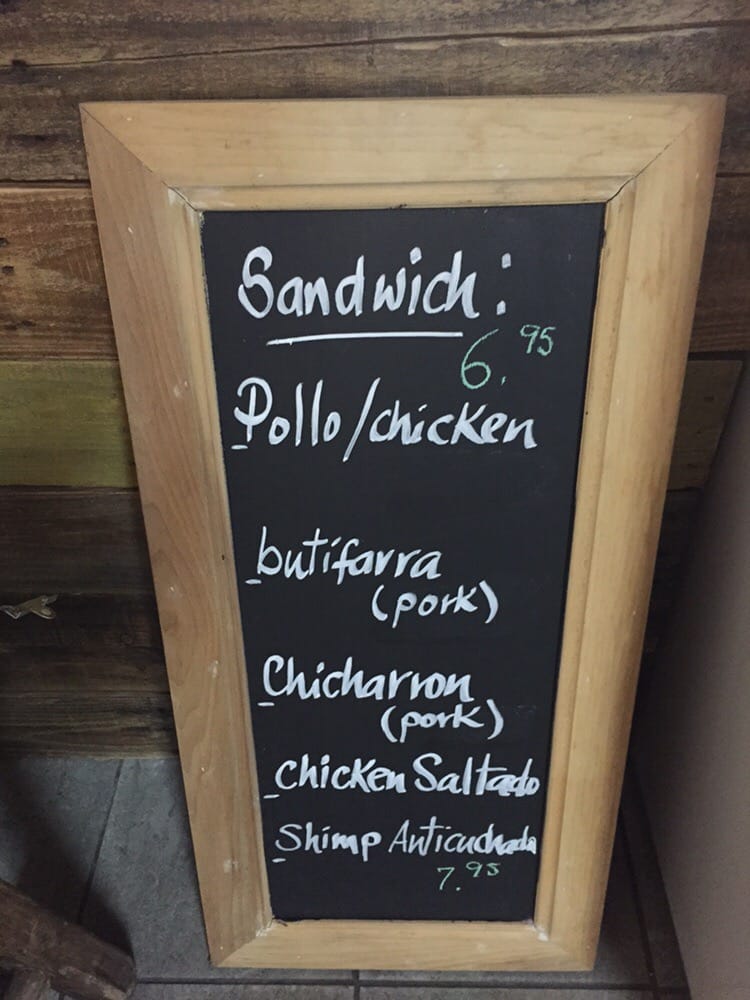 Sandwich:
6.95
-Pollo/chicken
-butifarra
(pork)
-Chicharron
(pork)
-chicken Saltado
-Shimp Anticuchada
7.95